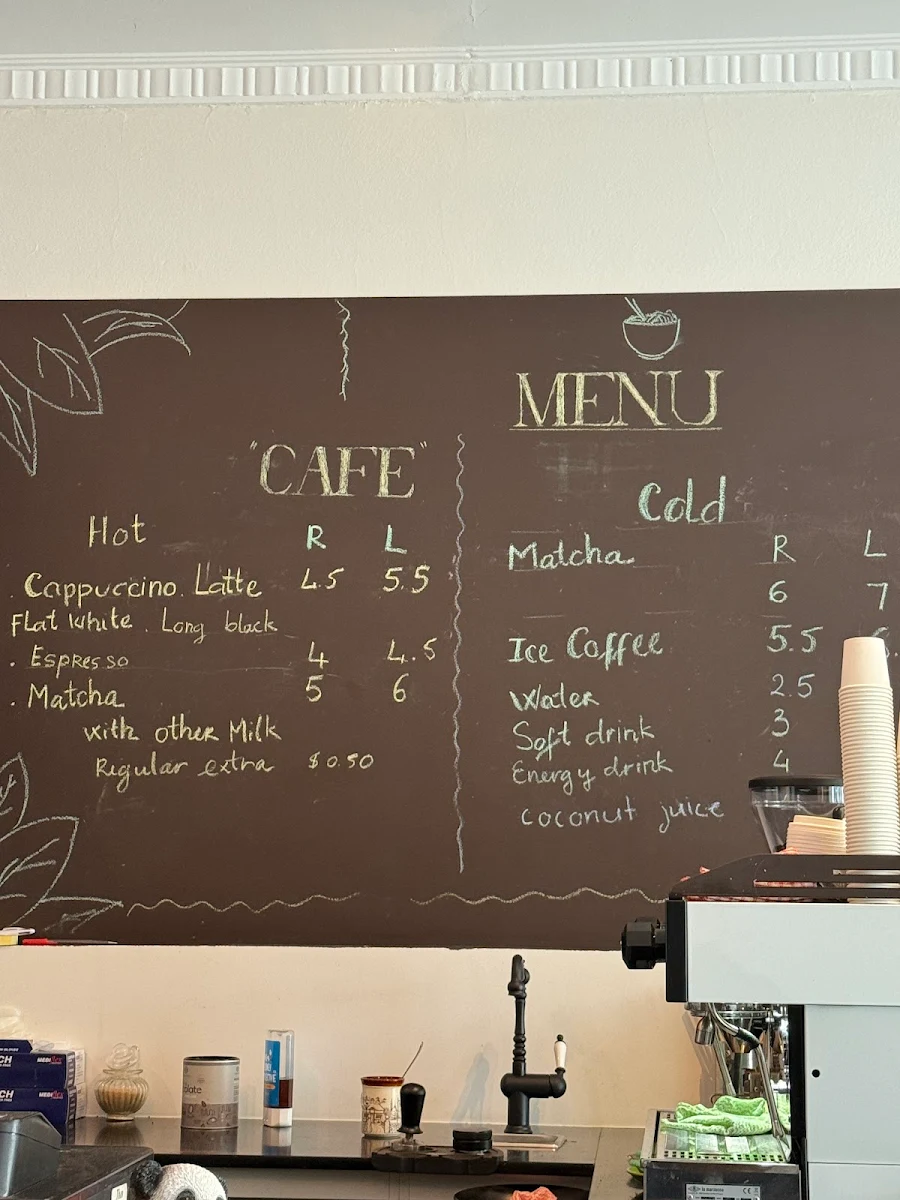 MENU
"CAFE"
Hot R L
. Cappuccino Latte 4.5 5.5
Flat White . Long black
. Espresso 4 4.5
. Matcha 5 6
with other Milk
Regular extra $0.50
Cold
Matcha R L
6 7
Ice Coffee 5.5
Water 2.5
Soft drink 3
Energy drink 4
coconut juice